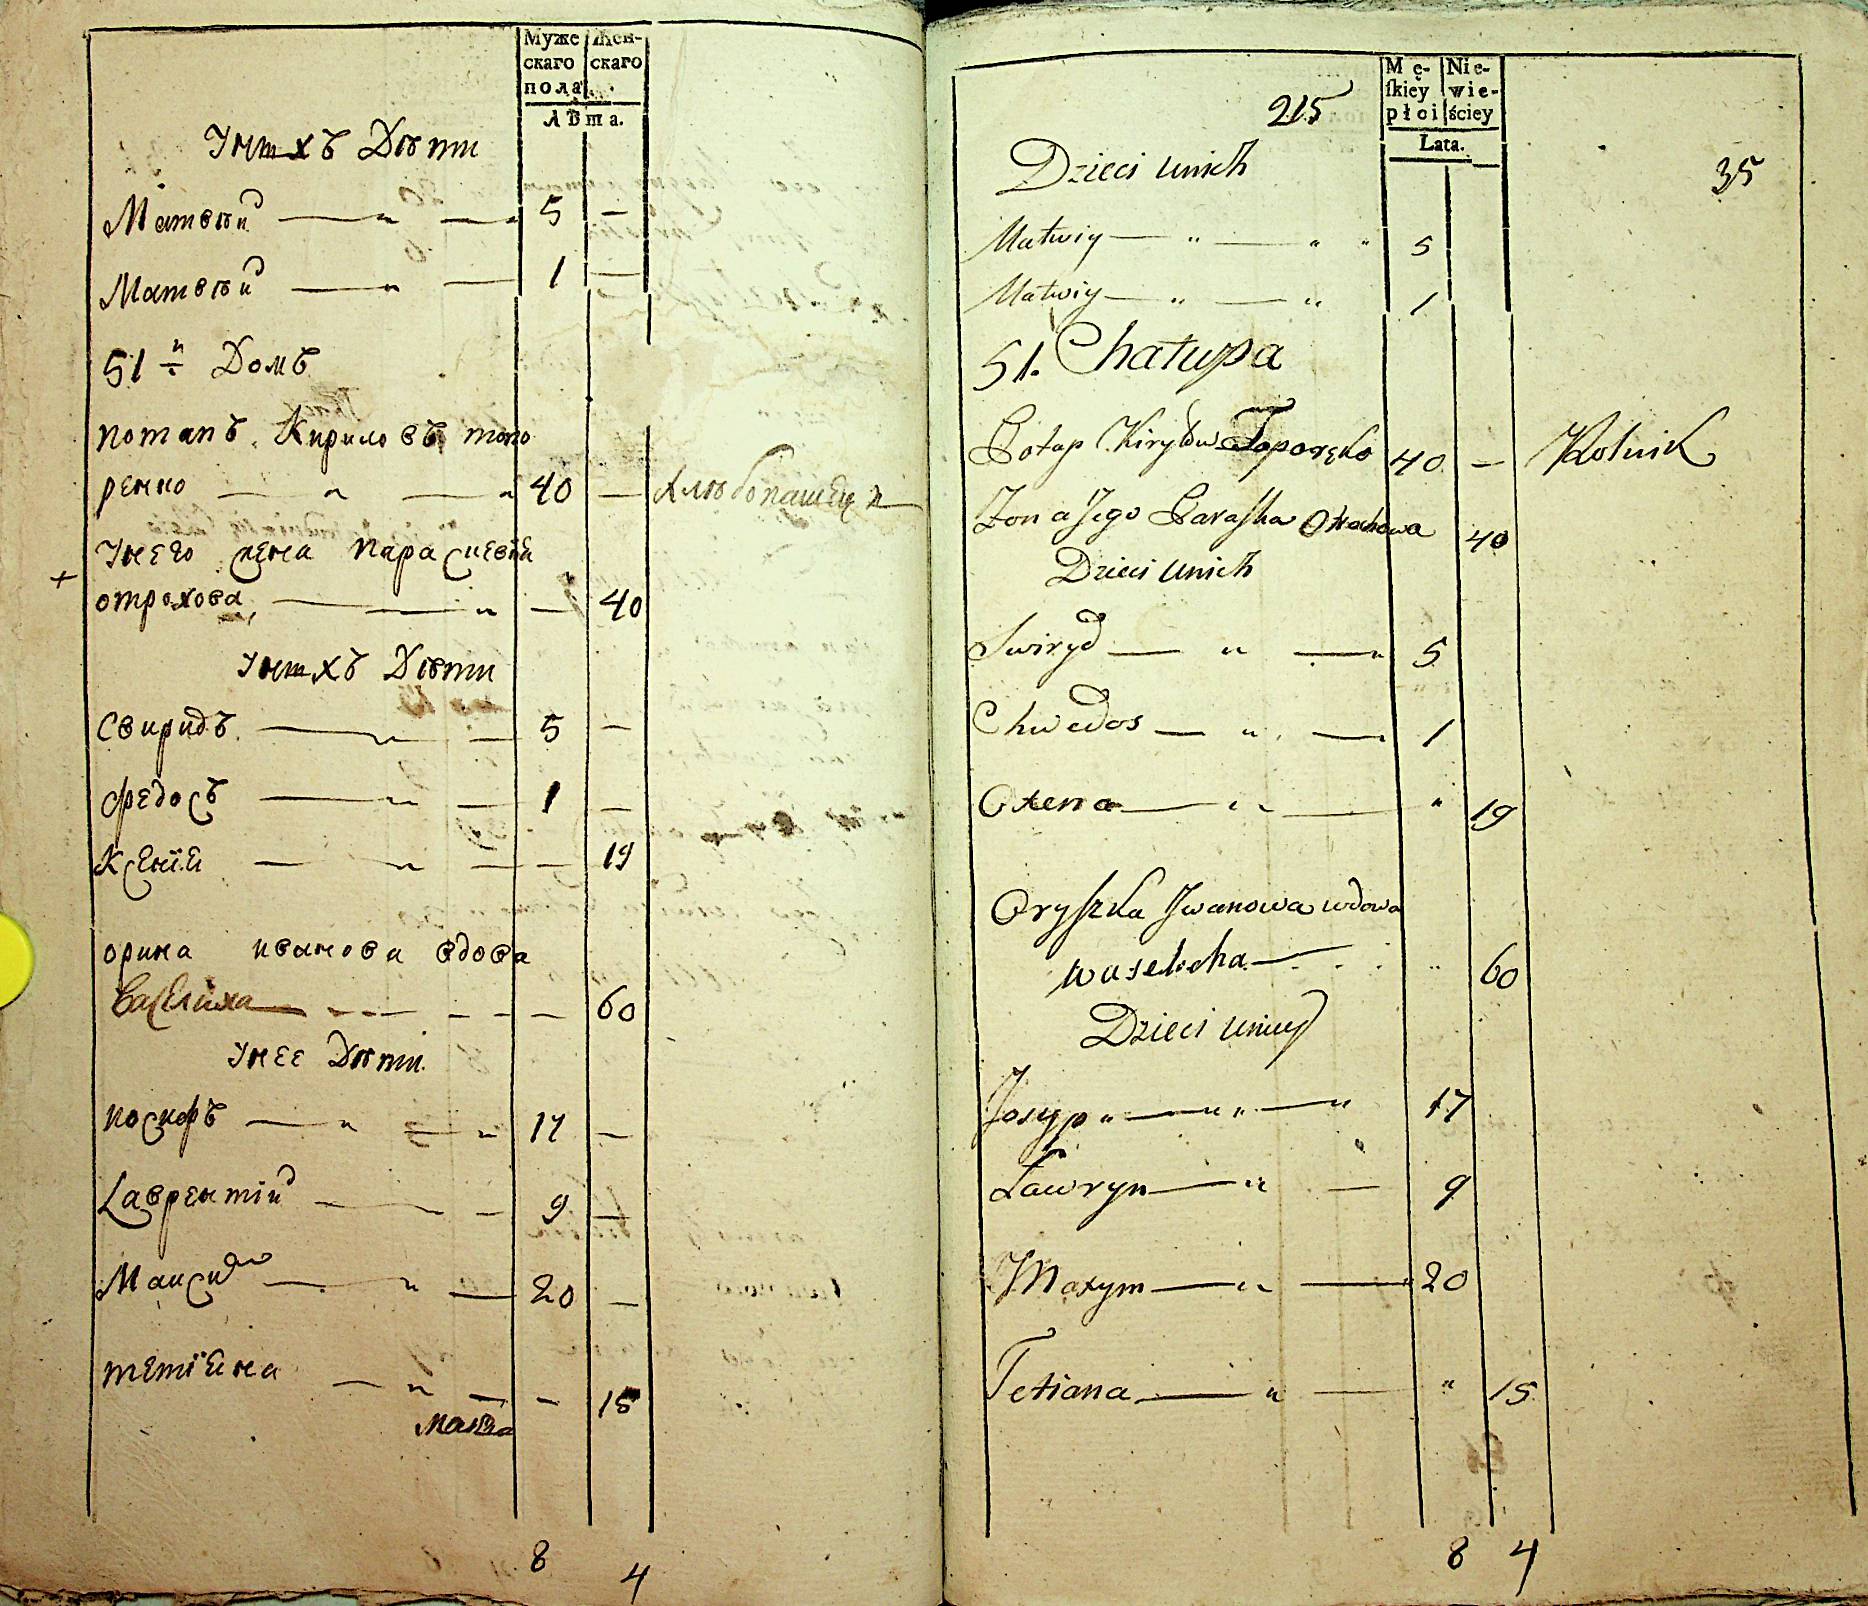 Муже
скаго
пола
Жен-
скаго
Лѣта.
Унихъ Дѣти
Матвѣй — „ — „ 5 —
Матвѣй — „ — 1 —
51й Домъ
потапъ Кириловъ топо
ренко — „ — „ 40 — хлѣбопашецъ
Унего жена Параскевия
отрохова — „ — 40
Унихъ Дѣти
Свиридъ — „ — 5 —
Федосъ — „ — 1 —
Ксения — „ — — 19
орина иванова вдова
Василиха — — — 60
Унее Дѣти
иосифъ — „ — „ 17 —
Лаврентій — — 9 —
Максим — „ — 20 —
тетіяна — „ — — 15
8 4
215
Mę-
skiey
płci
Nie-
wie-
ściey
Lata.
35
Dzieci unich
Matwiy — „ — „ „ 5
Matwiy — „ — „ 1
51. Chałupa
Potap Kiryłow Toporęko 40 — Rolnik
Zona Jego Paraska Otrochowa 40
Dzieci unich
Swiryd — „ — „ 5
Chwedos — „ — 1
Oxena — „ — „ 19
Oryszka Iwanowa wdowa
waselicha — „ 60
Dzieci uniey
Josyp „ — „ „ — „ 17
Ławryn — „ — 9
Maxym — „ — „ 20
Tetiana — „ — „ 15
8 4